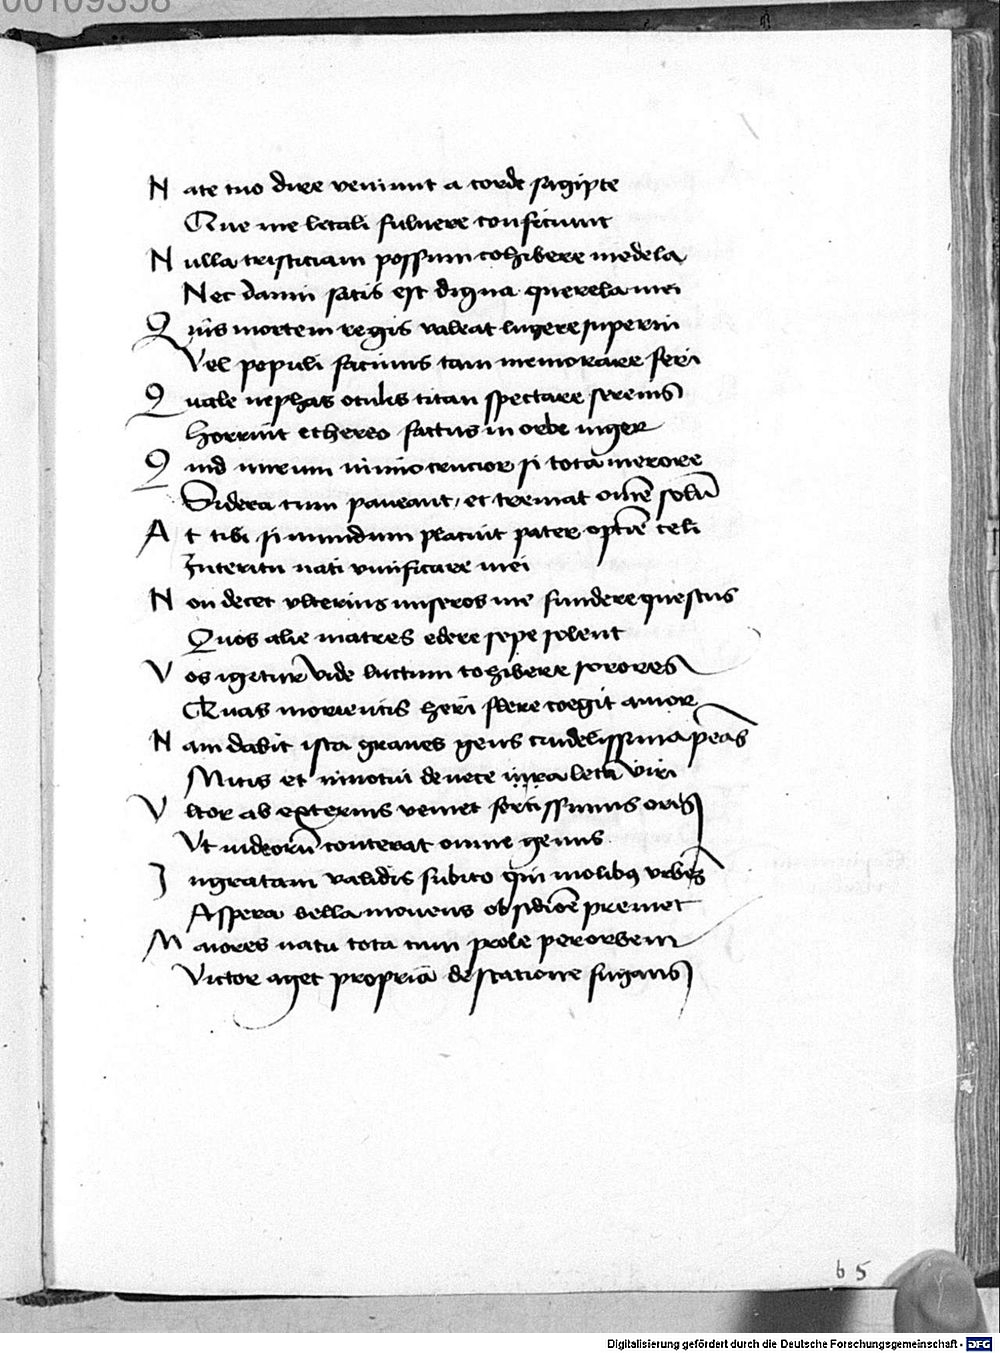 00109358
Nate tuo dire veniunt a corde sagipte
Que me letali fulnere conficiunt
Nulla tristiciam possum cohibere medela
Nec damni satis est digna querela mei
Quis mortem regis valeat lugere superni
Vel populi facinus tam memorare feri
Quale nephas oculis titan spectare serenis
Horruit ethereo factus in orbe niger
Quid mirum nimio crucior si tota merore
Sidera cum paveant, et tremat om̄e solū
At tibi si mundum placuit pater optīe celi
Interitu nati vivificare mei
Non decet ulterius miseros me fundere questus
Quos alie matres edere sepe solent
Vos igitur vide luctum cohibete sorores
Quas morientis heri flere coegit amor
Nam dabit ista graves gens crudelissima penas
Mitis et innocui de nece leta viri
Vltor ab externis veniet fortissimus oris
Vt iudeorū conterat omne genus
Ingratam validis subito qui molibus urbem
Aspera bella movens obsidiōe premet
Maiores natu tota cum prole per orbem
Victor aget propria de statione fugans
65
Digitalisierung gefördert durch die Deutsche Forschungsgemeinschaft - DFG